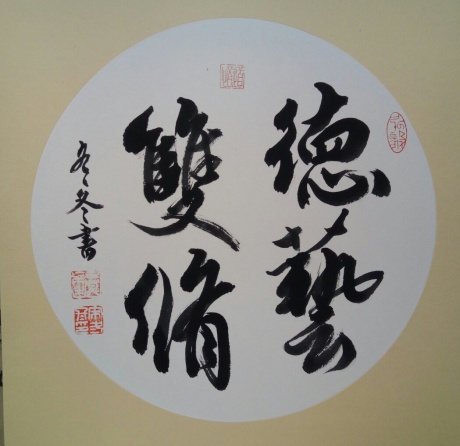 德藝
雙脩
冬冬書